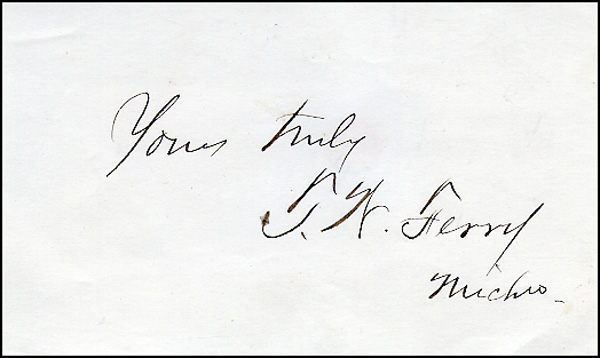 Yours truly
T. W. Ferry
Mich